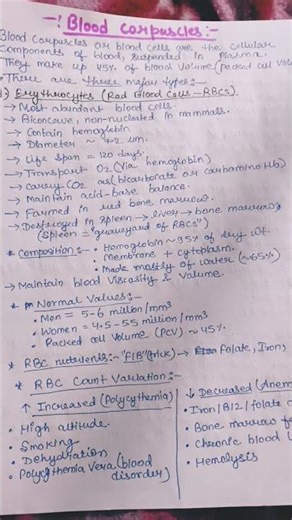 -: Blood corpuscles :-
Blood corpuscles or blood cells are the cellular
components of blood, suspended in plasma.
They make up 45% of blood volume (packed cell volu
• There are three major types:-
1) Erythrocytes (Red Blood Cells - RBCs)
→ Most abundant blood cells.
→ Biconcave, non-nucleated in mammals.
→ Contain hemoglobin
→ Diameter ~ 7.2 um.
→ Life span = 120 days
→ Transport O2 (Via hemoglobin)
→ carry CO2 as (bicarbonate or carbamino Hb)
→ Maintain acid-base balance.
→ Farmed in red bone marrow.
→ Destroyed in Spleen → liver → bone marrow
(Spleen = "graveyard of RBCs")
* Composition:- • Hemoglobin ~95% of dry wt.
• Membrane + cytoplasm.
• Made mostly of water (~65%)
→ Maintain blood Viscosity & Volume.
* Normal Values:-
• Men = 5-6 million/mm3
• Women = 4.5-5.5 million/mm3
• Packed cell Volume (PCV) ~ 45%
* RBC nutrients:- "FIB" (trick) → Folate, Iron,
* RBC Count Variation:-
↑ Increased (Polycythemia)
• High altitude
• Smoking
• Dehydration
• Polycythemia Vera (blood
disorder)
↓ Decreased (Anem
• Iron/B12/folate
• Bone marrow
• Chronic blood
• Hemolysis